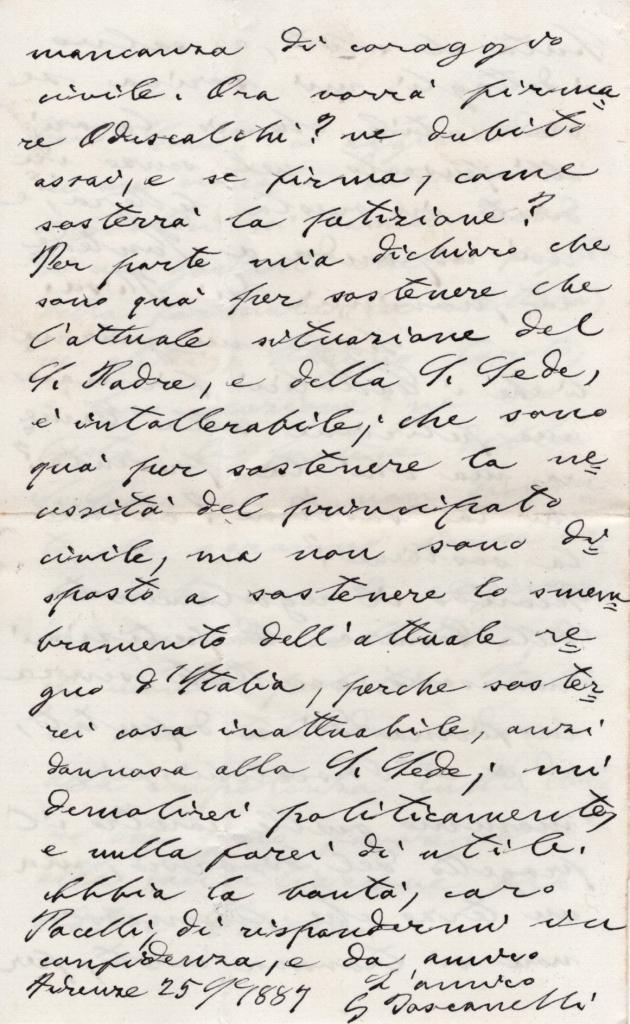 mancanza di coraggio
civile. Ora vorrà firma=
re Odescalchi? ne dubito
assai, e se firma, come
sosterrà la petizione?
Per parte mia dichiaro che
sono quà per sostenere che
l'attuale situazione del
S. Padre, e della S. Sede,
è intollerabile; che sono
quà per sostenere la ne=
cessità del principato
civile, ma non sono di=
sposto a sostenere lo smem=
bramento dell'attuale re=
gno d'Italia, perche soster=
rei cosa inattuabile, anzi
dannosa alla S. Sede; mi
demolirei politicamente,
e nulla farei di utile.
Abbia la bontà, caro
Pacelli, di rispondermi in
confidenza, e da amico
L'amico
Firenze 25 1887
G Toscanelli